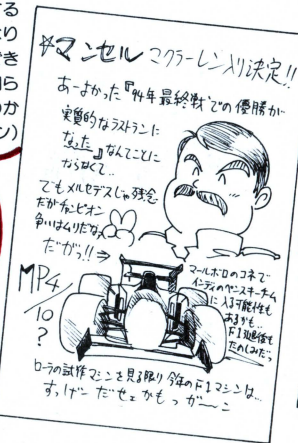 する
たり
でき
明ら
のか
ン)
☆マンセル マクラーレン入り決定!!
あーよかった『'94年最終戦での優勝が
実質的なラストランに
なった』なんてことに
ならなくて‥
でもメルセデスじゃ残念
だがチャンピオン
争いはムリだなァ
だがっ!!→
マールボロのコネで
インディのペンスキーチーム
に入る可能性も
あるかも‥
F1引退後も
たのしみだっ
MP4/
10
?
ローラの試作マシンを見る限り今年のF1マシンは…
すっげーだせェかもっがーン